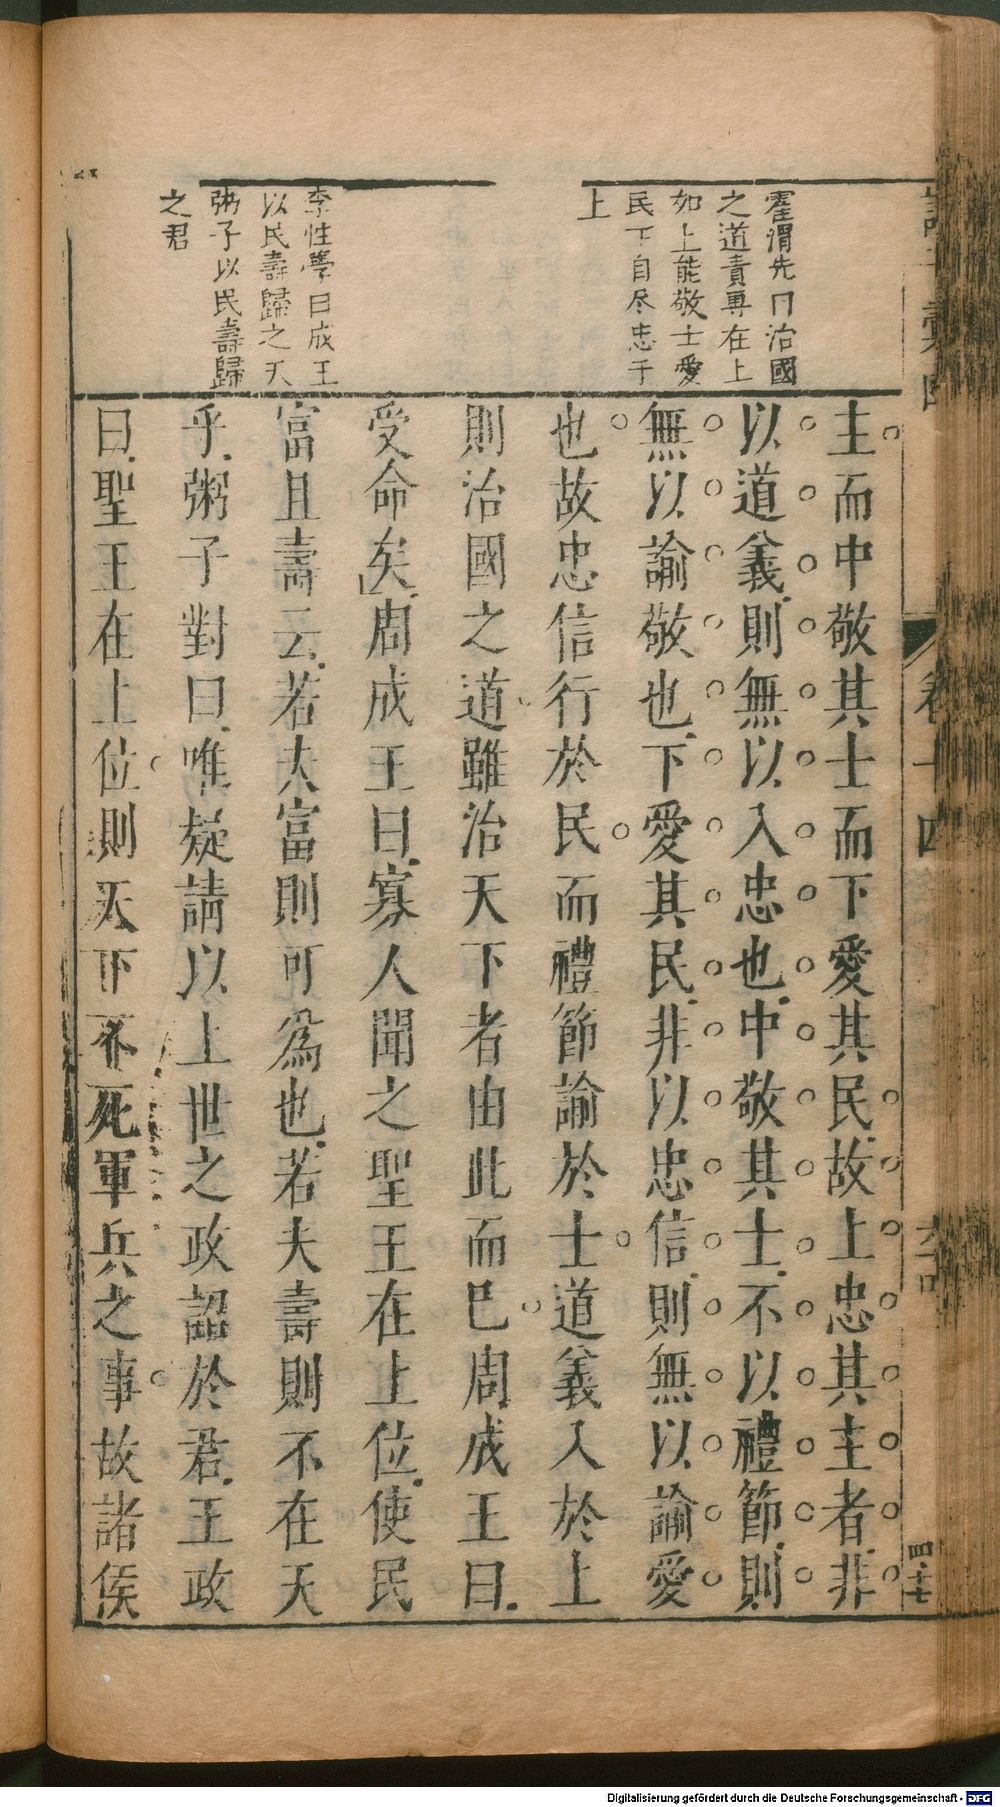 霍渭先曰治國
之道責專在上
如上能敬士愛
民下自尽忠于
上
李性學曰成王
以民壽歸之天
粥子以民壽歸
之君
主而中敬其士而下愛其民故上忠其主者非
以道義則無以入忠也中敬其士不以禮節則
無以諭敬也下愛其民非以忠信則無以諭愛
也故忠信行於民而禮節諭於士道義入於上
則治國之道雖治天下者由此而已周成王曰
受命矣周成王曰寡人聞之聖王在上位使民
富且壽云若夫富則可為也若夫壽則不在天
乎粥子對曰唯疑請以上世之政詔於君王政
曰聖王在上位則天下不死軍兵之事故諸侯
卷十四
四十七
Digitalisierung gefördert durch die Deutsche Forschungsgemeinschaft - DFG